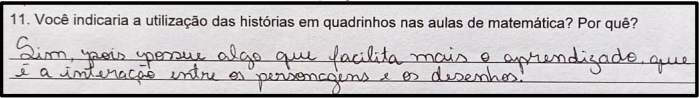 11. Você indicaria a utilização das histórias em quadrinhos nas aulas de matemática? Por quê?
Sim, pois possue algo que facilita mais o aprendizado, que
é a interação entre os personagens e os desenhos.